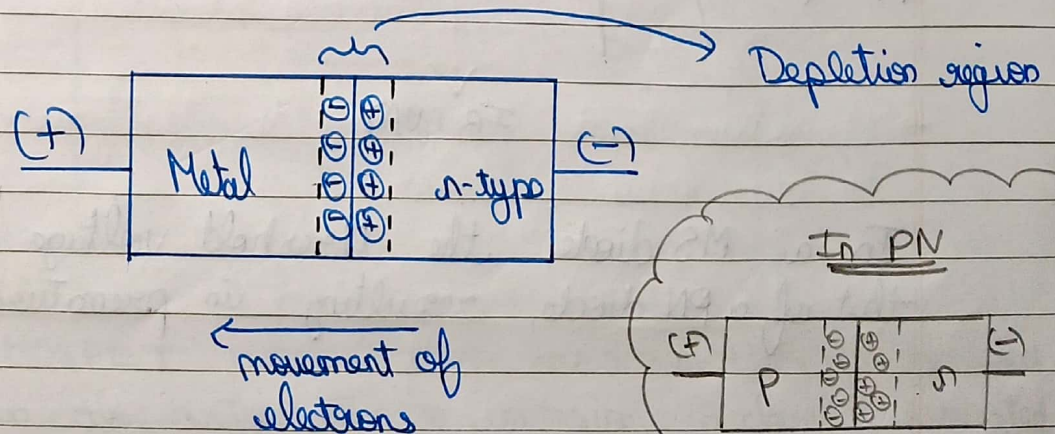 Depletion region
(+) Metal ⊖ ⊕ n-type (-)
⊖ ⊕
⊖ ⊕
⊖ ⊕
movement of
electrons
In PN
(+) P n (-)